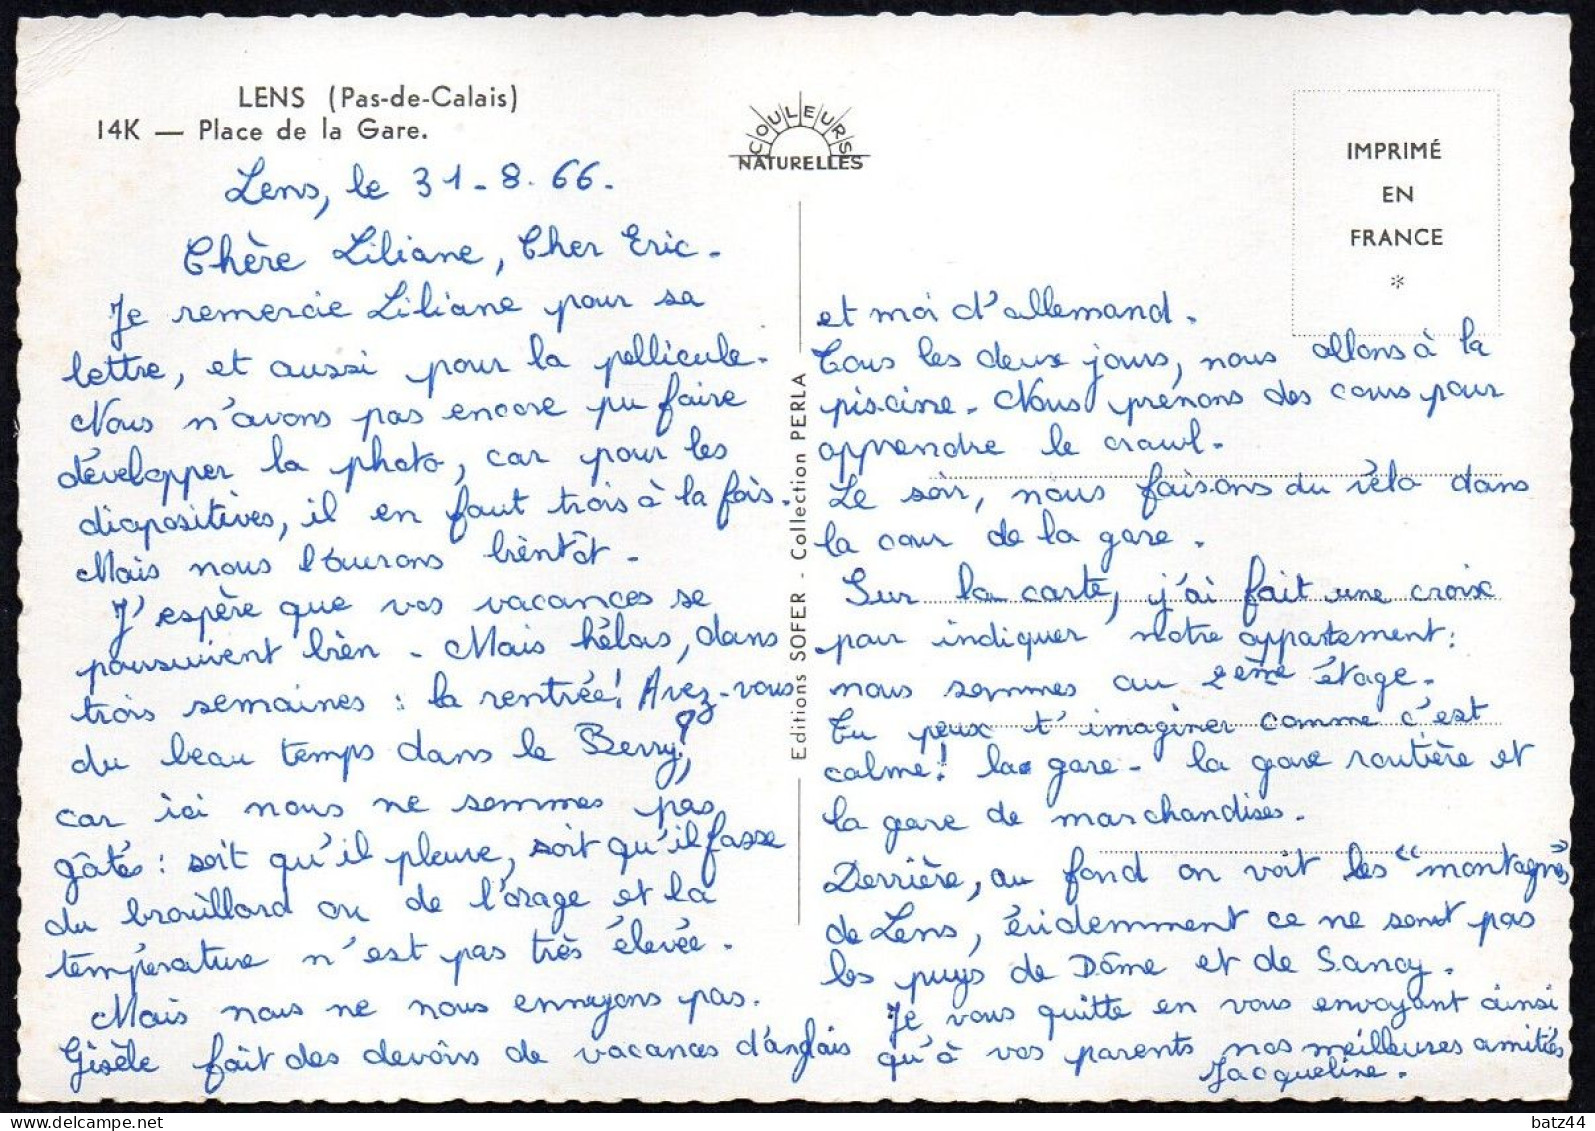 LENS (Pas-de-Calais)
14K — Place de la Gare.
COULEURS
NATURELLES
IMPRIMÉ
EN
FRANCE
*
Lens, le 31-8.66.
Chère Liliane, Cher Eric.
Je remercie Liliane pour sa
lettre, et aussi pour la pellicule.
Nous n'avons pas encore pu faire
développer la photo, car pour les
diapositives, il en faut trois à la fois.
Mais nous l'aurons bientôt.
J'espère que vos vacances se
poursuivent bien. Mais hélas, dans
trois semaines : la rentrée! Avez-vous
du beau temps dans le Berry?,
car ici nous ne sommes pas
gâtés : soit qu'il pleuve, soit qu'il fasse
du brouillard ou de l'orage et la
température n'est pas très élevée.
Mais nous ne nous ennuyons pas.
Gisèle fait des devoirs de vacances d'anglais
Editions SOFER - Collection PERLA
et moi d'allemand.
Tous les deux jours, nous allons à la
piscine. Nous prenons des cours pour
apprendre le crawl.
Le soir, nous faisons du vélo dans
la cour de la gare.
Sur la carte, j'ai fait une croix
pour indiquer notre appartement:
nous sommes au 2ème étage.
Tu peux t'imaginer comme c'est
calme! la gare - la gare routière et
la gare de marchandises.
Derrière, au fond on voit les "montagnes"
de Lens, évidemment ce ne sont pas
les puys de Dôme et de Sancy.
Je vous quitte en vous envoyant ainsi
qu'à vos parents nos meilleures amitiés
Jacqueline.
batz44